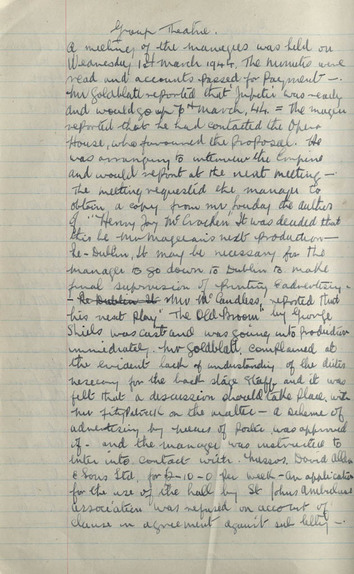 Group Theatre.
A meeting of the managers was held on
Wednesday 1st March 1944. The minutes were
read and accounts passed for payment —.
Mr Goldblatt reported that Jupiter was ready
and would go up 7th March, 44. = The manager
reported that he had contacted the Opera
House, who favoured the proposal. He
was arranging to interview the Empire
and would report at the next meeting —.
The meeting requested the manager to
obtain a copy from Mr the author
of "Henry Joy McCracken. It was decided that
this be Mr Magerain's next production —
Re-Dublin, It may be necessary for the
manager to go down to Dublin to make
final supervision of printing & advertising. -
- Re Dublin It Mr McCandless, reported that
his next play "The Old Broom" by George
Shiels was cast and was going into production
immediately. Mr Goldblatt, complained at
the evident lack of understanding of the duties
necessary for the back stage staff and it was
felt that a discussion should take place with
Mr Fitzpatrick on the matter — a scheme of
advertising by means of poster was approved
of - and the manager was instructed to
enter into contact with. Messrs. David Allen
& Sons Ltd, for -10-0 per week - An application
for the use of the hall by St Johns Ambulance
Association was refused on account of
clause in agreement against sub letting —.